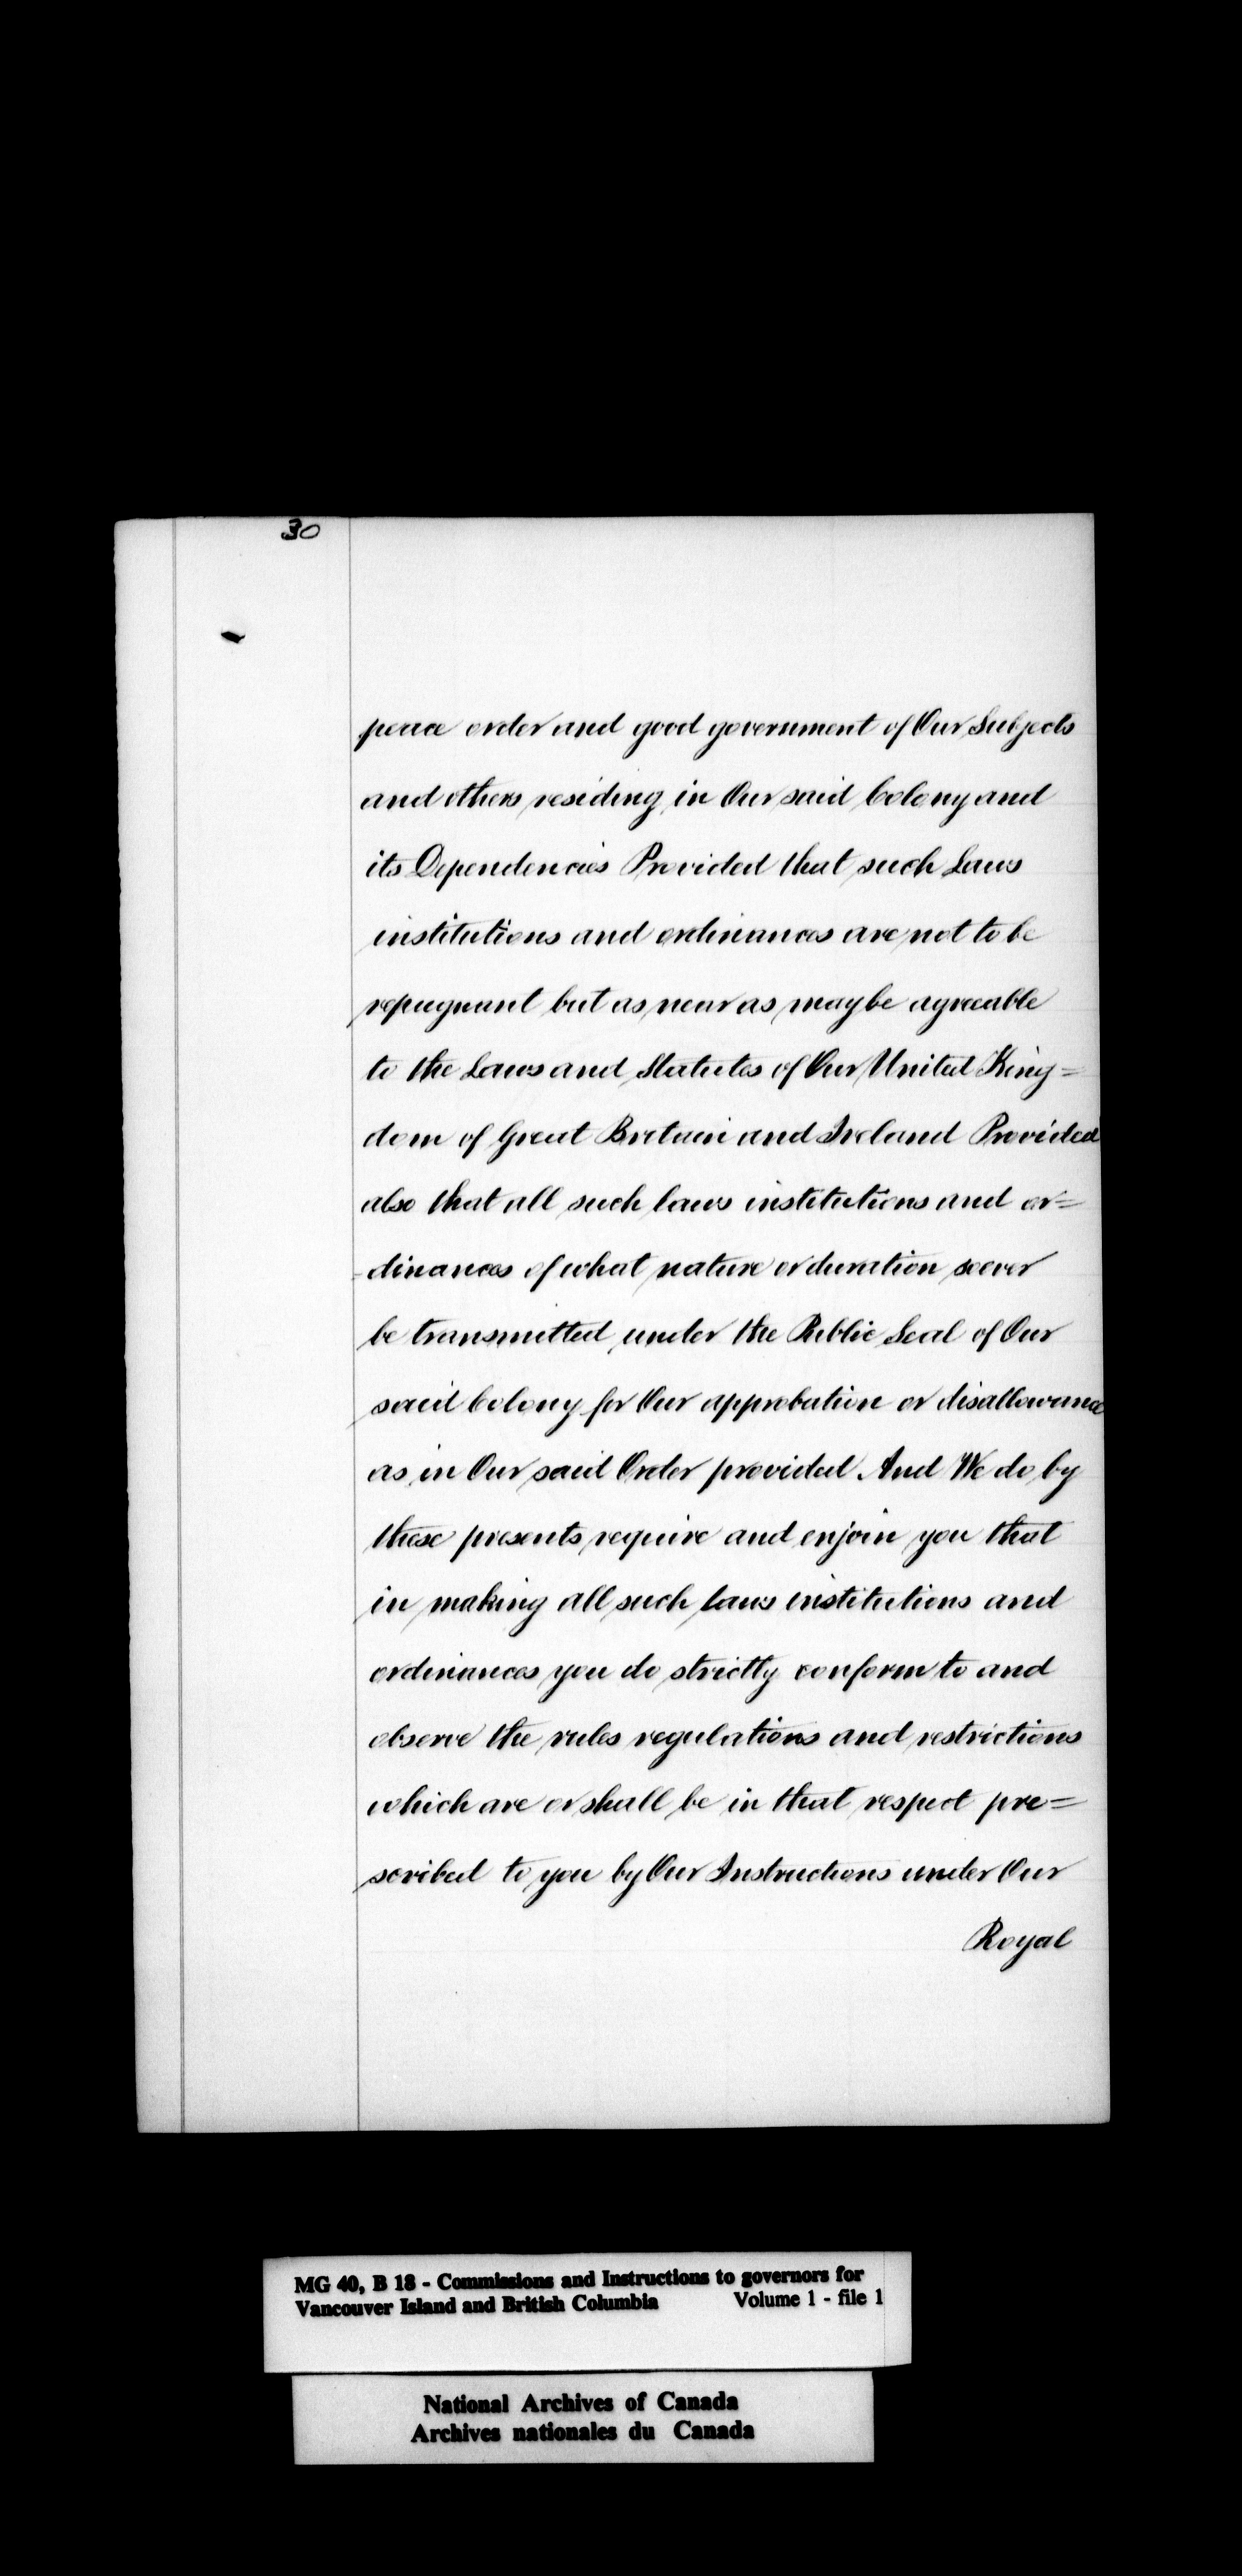 30
peace order and good government of Our Subjects
and others residing in Our said Colony and
its Dependencies Provided that such Laws
institutions and ordinances are not to be
repugnant but as near as may be agreeable
to the Laws and Statutes of Our United King=
dom of Great Britain and Ireland Provided
also that all such laws institutions and or=
-dinances of what nature or duration soever
be transmitted under the Public Seal of Our
said Colony for Our approbation or disallowance
as in Our said Order provided And We do by
these presents require and enjoin you that
in making all such laws institutions and
ordinances you do strictly conform to and
observe the rules regulations and restrictions
which are or shall be in that respect pre=
scribed to you by Our Instructions under Our
Royal
MG 40, B 18 - Commissions and Instructions to governors for
Vancouver Island and British Columbia Volume 1 - file 1
National Archives of Canada
Archives nationales du Canada